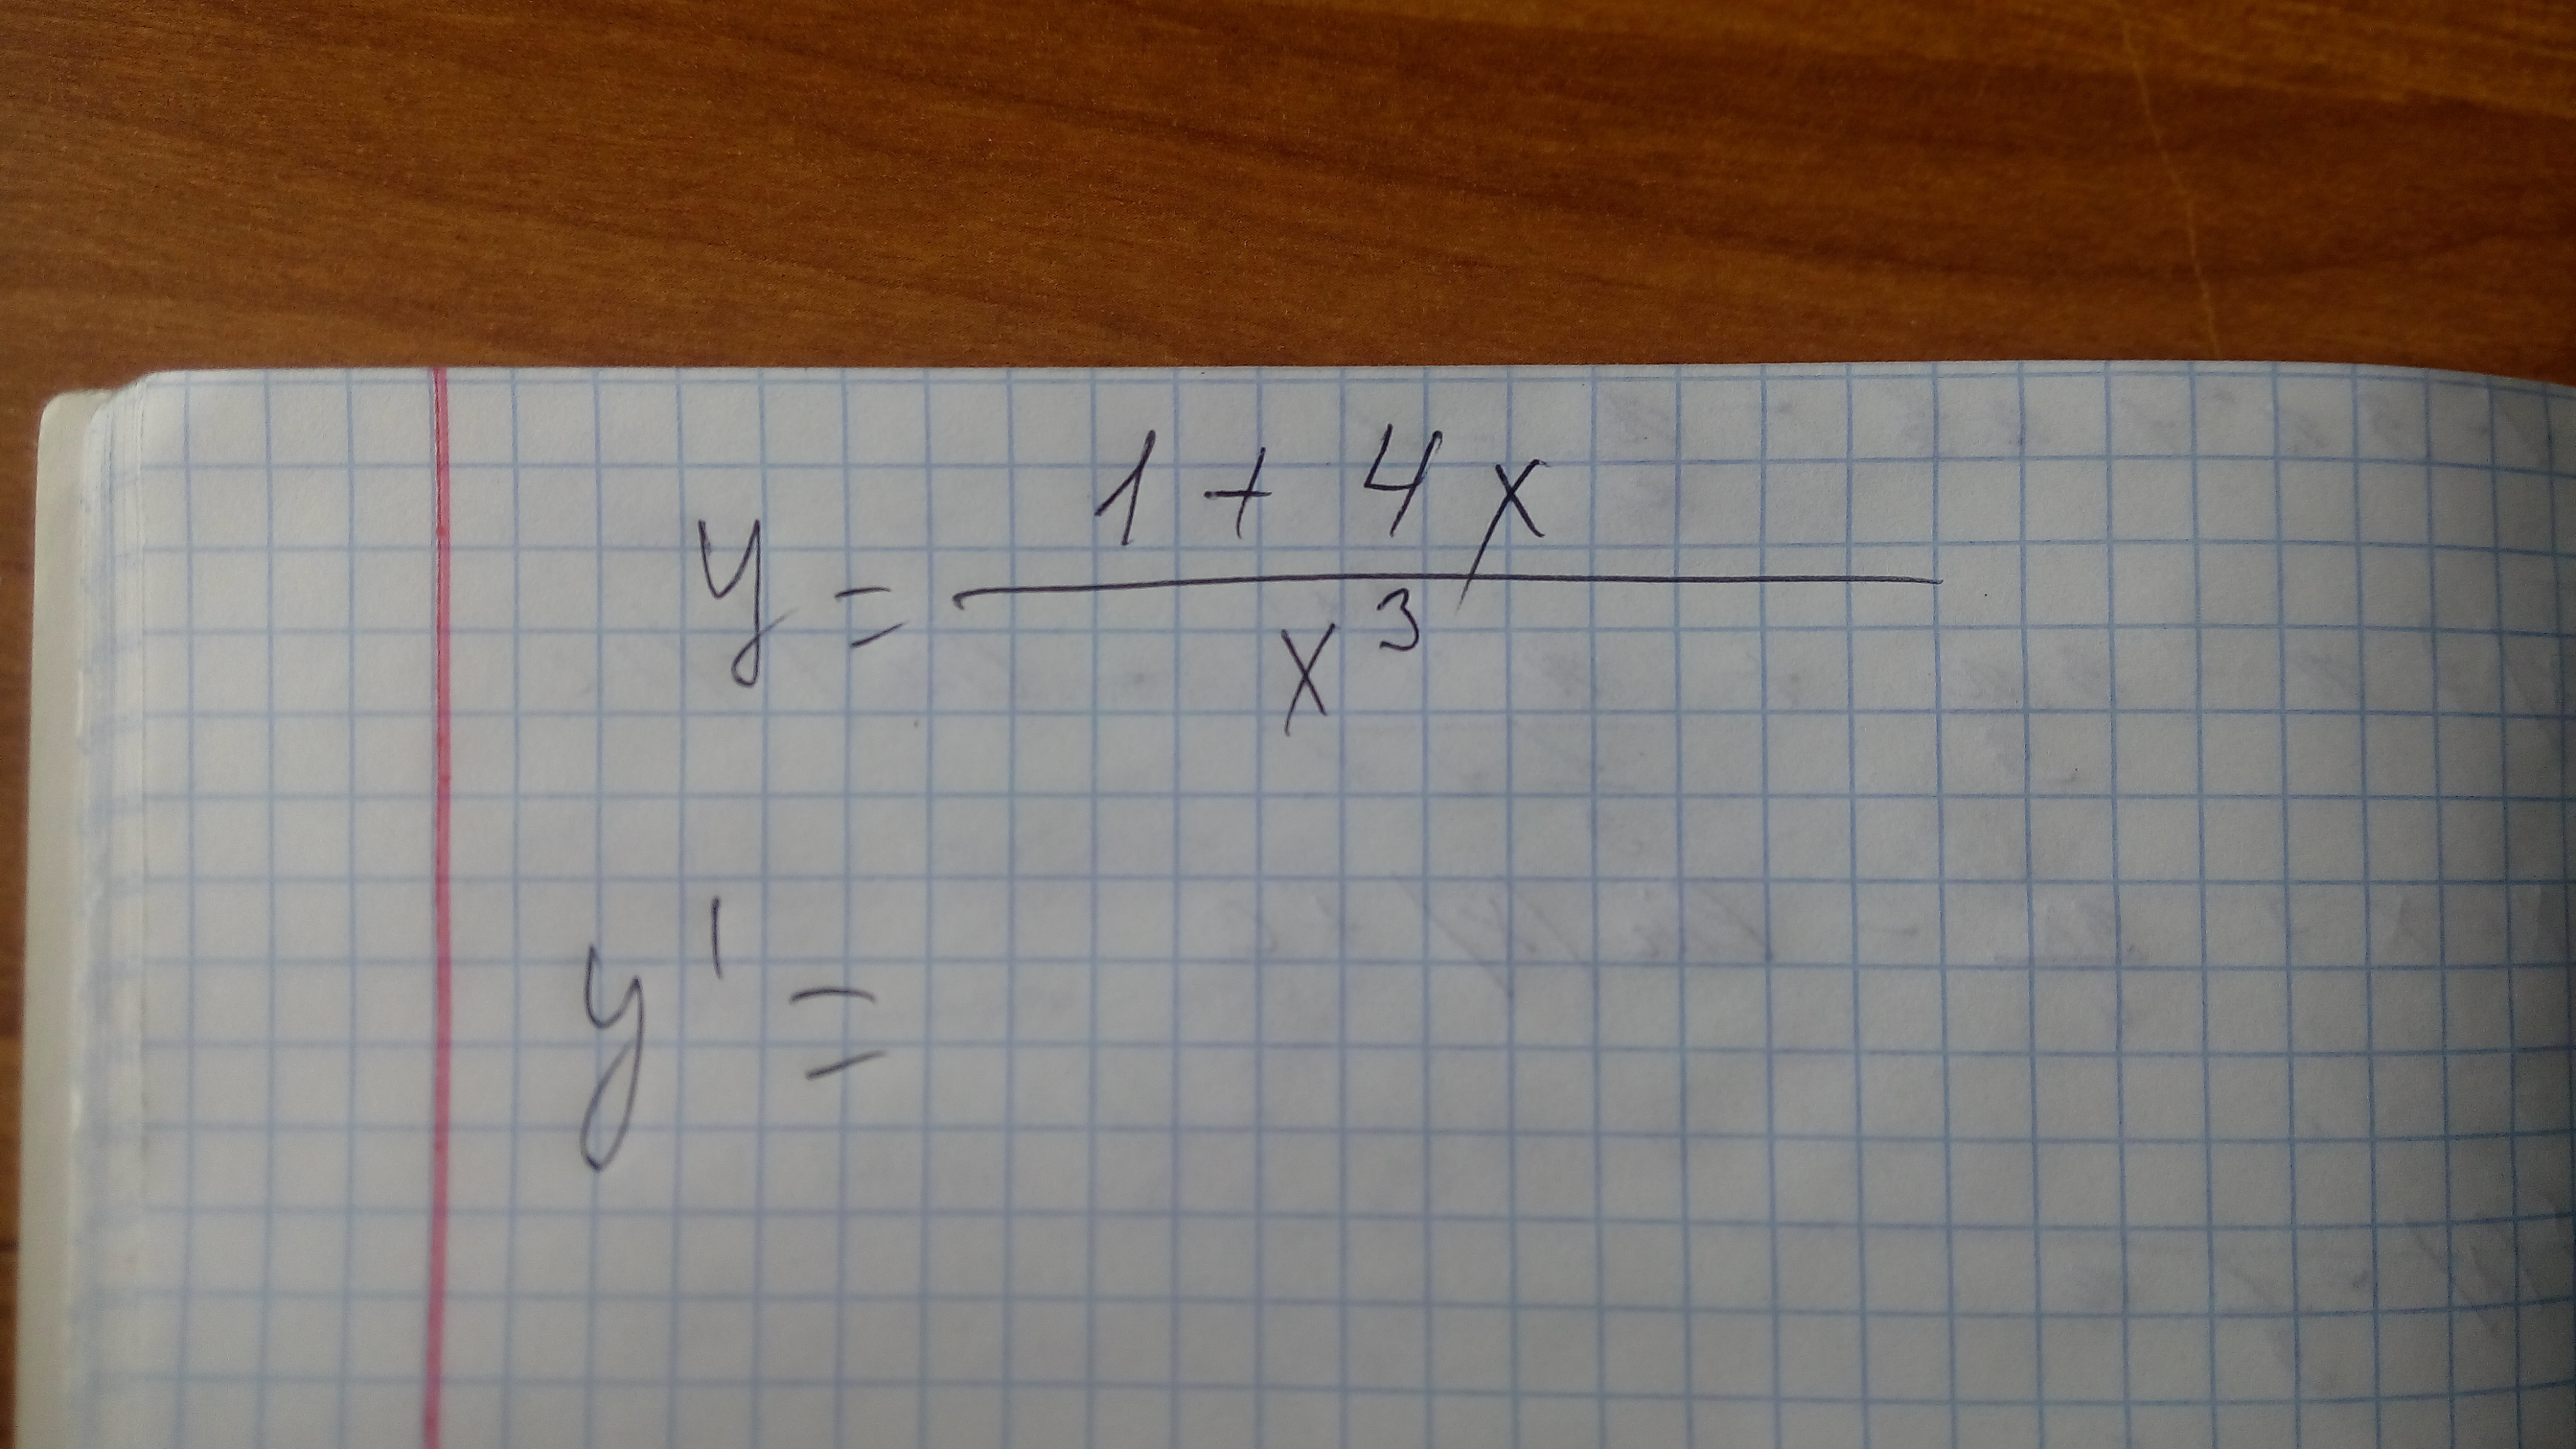 y = (1 + 4x) / x³
y' =